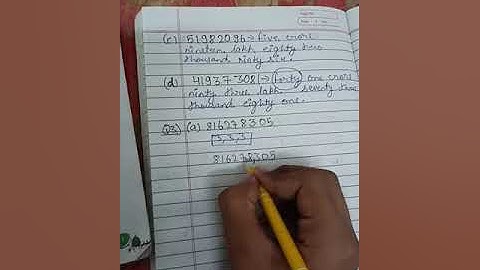 (c) 51982096→ five crore
nineteen lakh eighty two
thousand ninty six.
(d) 41937308→ forty one crore
ninty three lakh seventy three
thousand eighty one.
Q3) (a) 816278305
3,3,3
816278,305